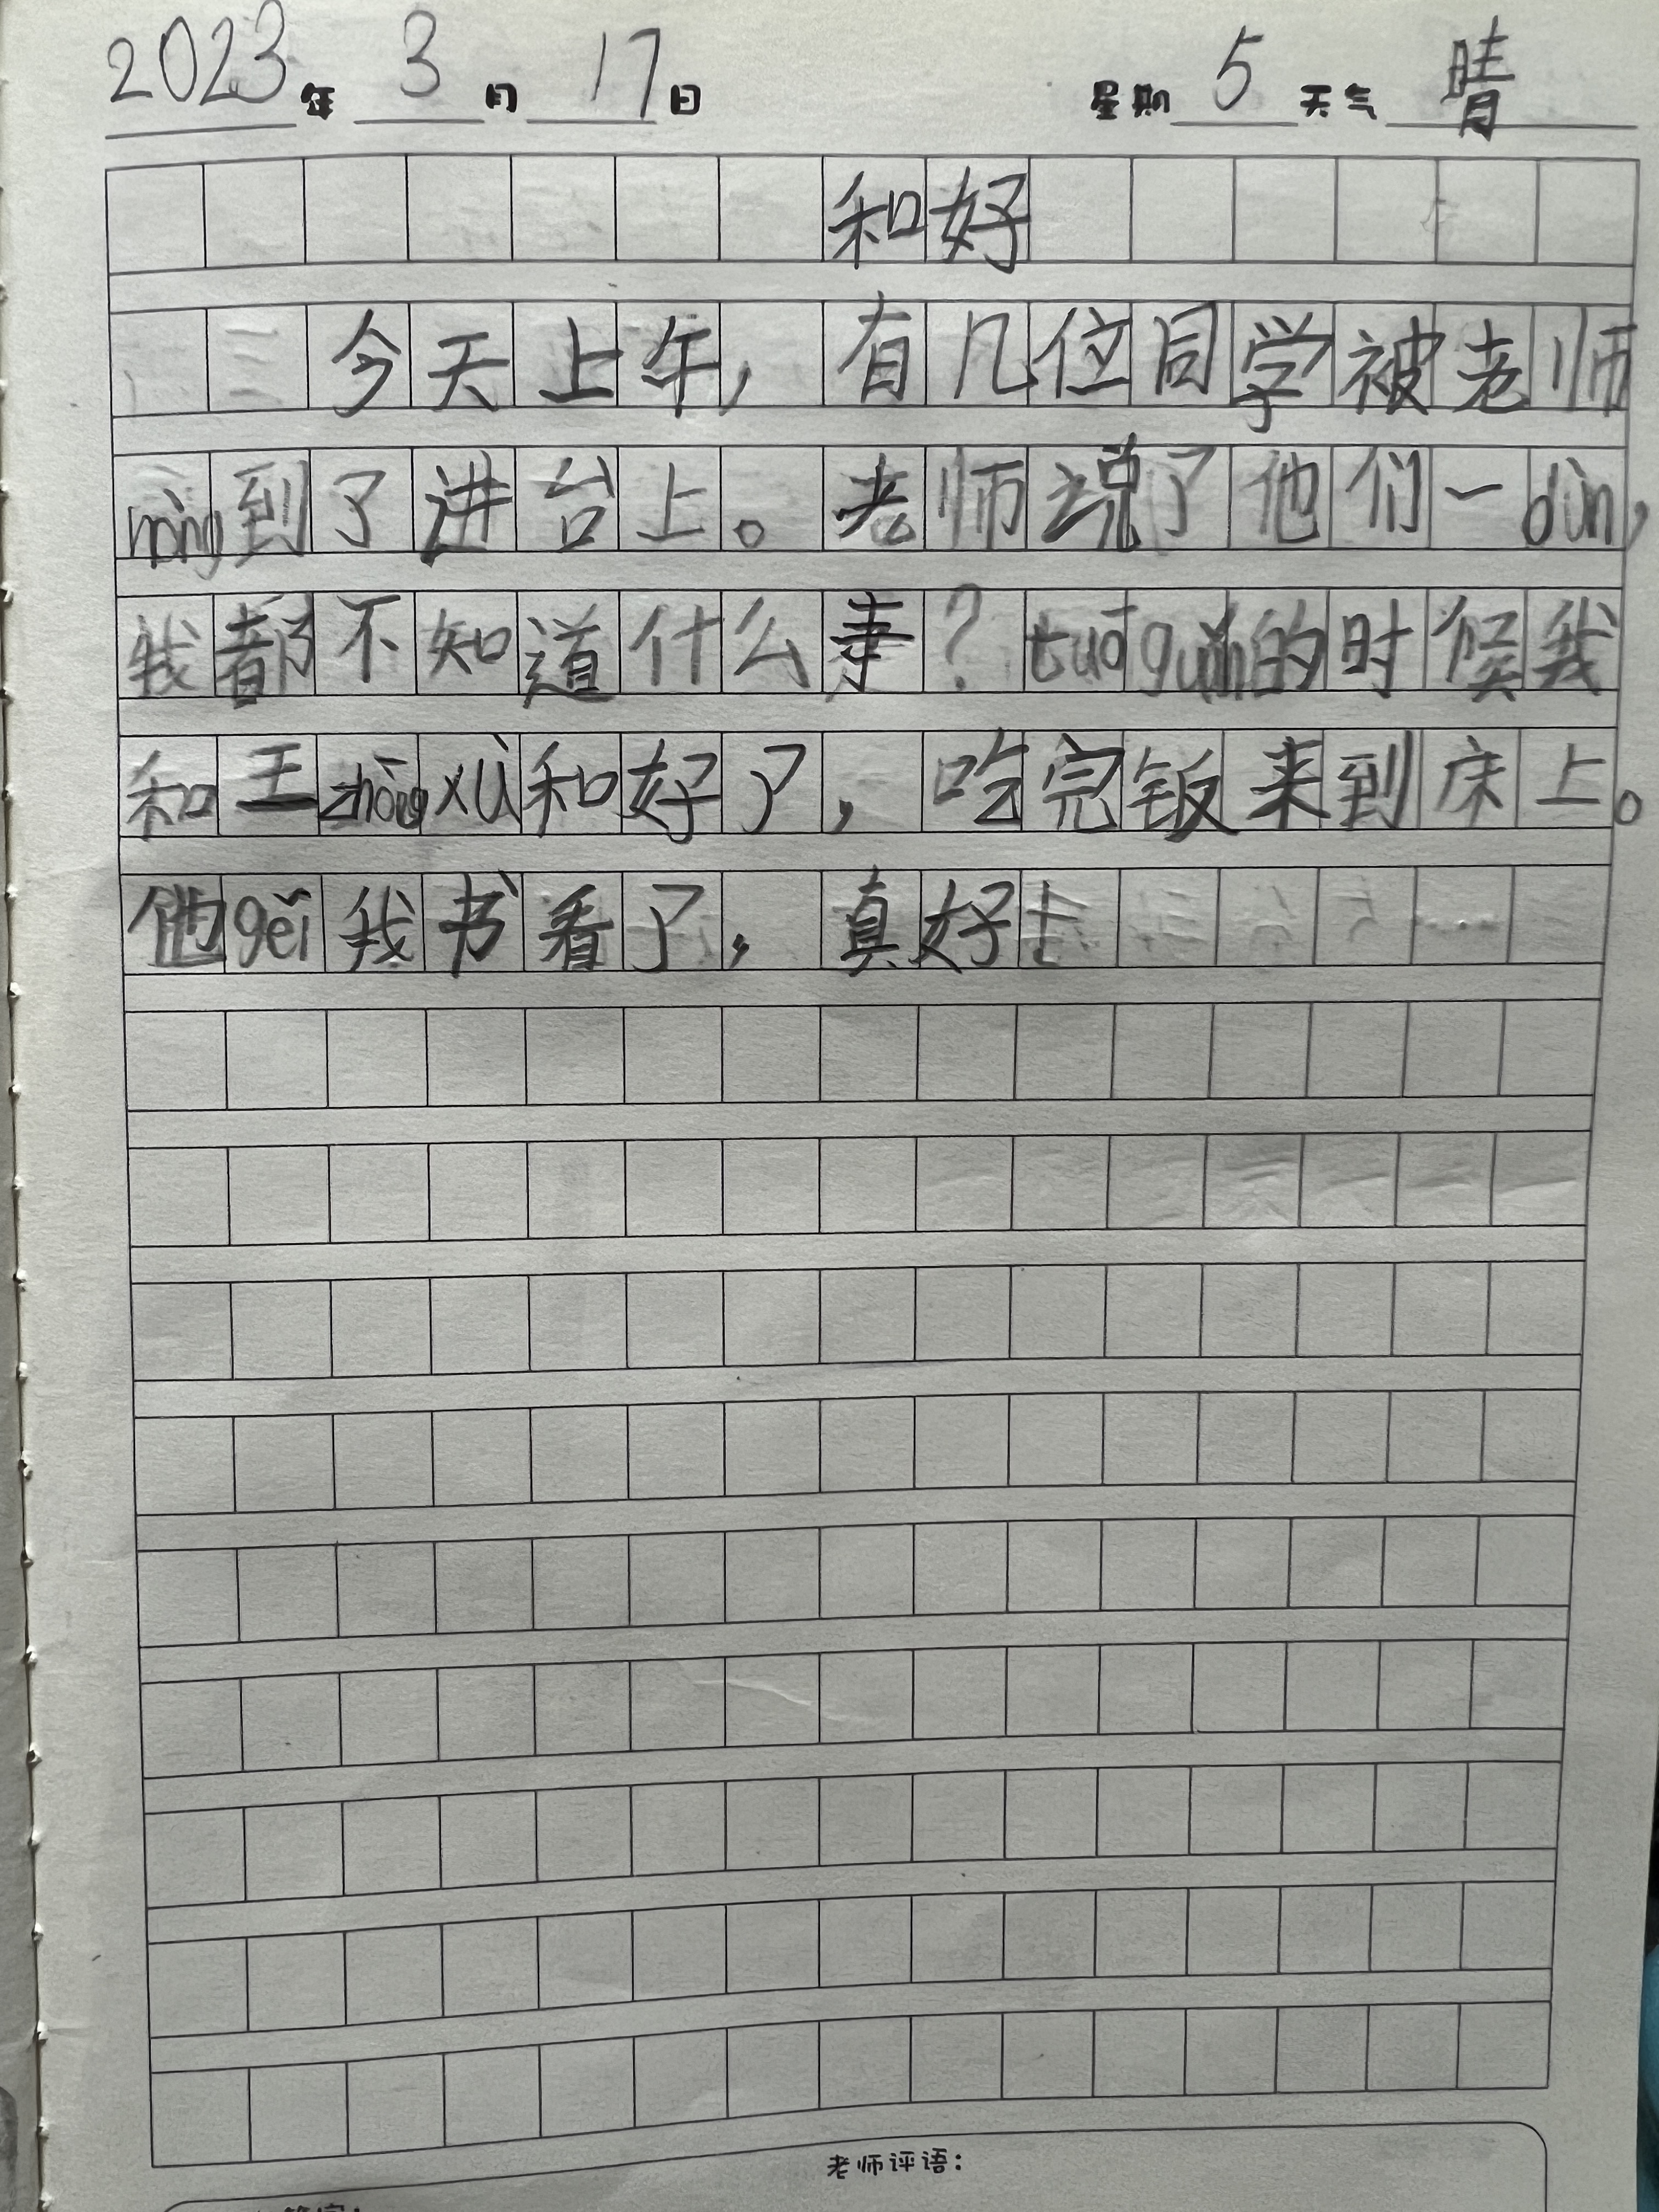 2023年3月17日 星期5天气晴
和好
今天上午，有几位同学被老师
nòng到了进台上。老师说了他们一dùn，
我都不知道什么事？tuō guǎn的时候我
和王zhōng xù和好了，吃完饭来到床上。
他gěi我书看了，真好！
老师评语：